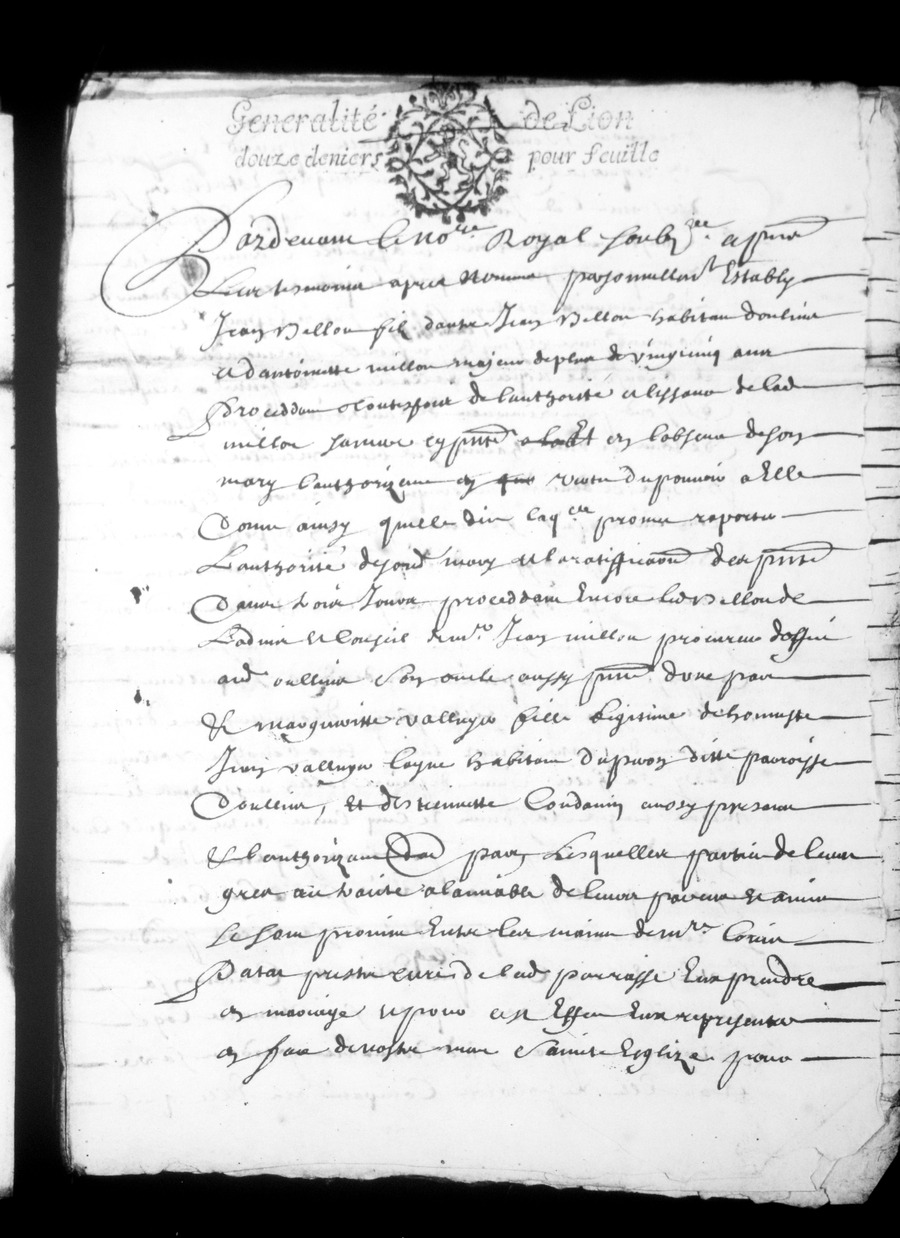 Generalité de Lion
douze deniers pour feuille
Pardevant le no.re Royal soubz.ne et pnts
Les tesmoins apres nommes personnellem.t Estably
Jean Vellon filz d'autre Jean Vellon habitant doulins
et dantoinette millon majeur de plus de vingt cinq ans
proceddant toutesfois de lauthorité et lissance de lad
millon sa mere cy pnte en labsence de son
mary lauthorizant en vertu du pouvoir a Elle
Donne ainsy quelle dit laq.lle promet raporter
Lauthorité de sond mary et la ratiffication des pntes
Dans trois Jours proceddant Encore led Vellon de
Ladvis et Conseil de m.re Jean millon procureur doffice
aud oullins son oncle aussy pnt dune part
Et margueritte valluys fille legitime de honneste
Jean valluys habitant du parsus ditte parroisse
Doullins, Et destiennette Condamin aussy presens
Et lauthorizant dau part Lesquelles parties de leurs
gres au traité alamiable de leurs parens Et amis
se sont promis Entre les mains de m.re
prestre curé de lad parroisse Eux prendre
en mariage et pour cest Effect Eux representer
en face de nostre mere Sainte Esglize pour